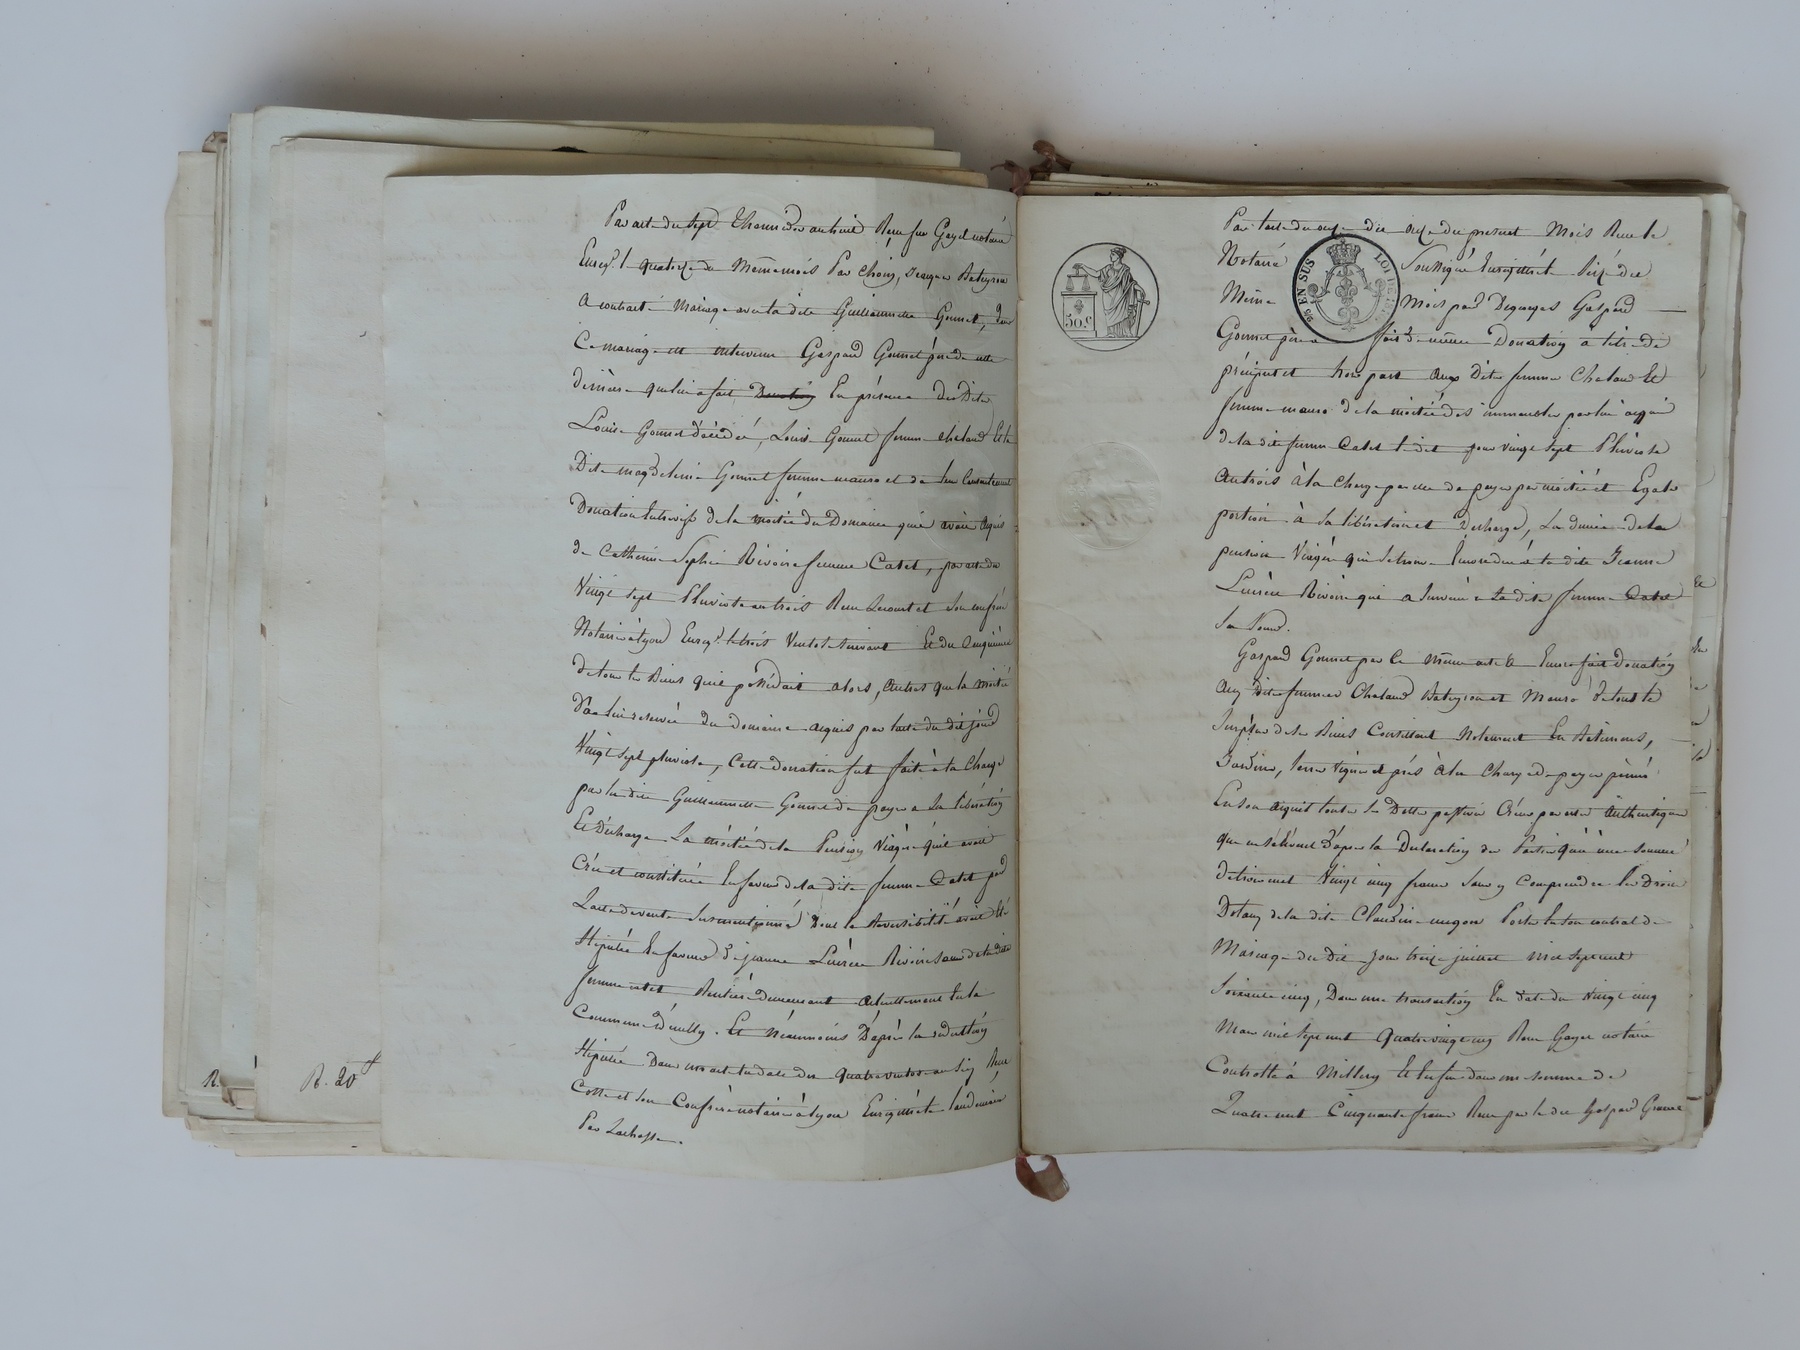 Par acte du sept Thermidor an huit Reçu sur Gayet notaire
Enreg.t le quatorze du Même mois Par Choisy, Jacques Bateyron
A contracté Mariage avec la dite Guillaumette Gonnet, dans
Ce mariage est intervenu Gaspard Gonnet père de cette
dernière qui lui a fait En présence des Dits
Louis Gonnet décédé, Louise Gonnet femme chaland Et la
Dite magdeleine Gonnet femme mauro et de leur Consentement
Donation Entrevifs de la moitié du Domaine qu'il avoit aquis
de Catherine Sophie Rivoire femme Catet, par acte du
Vingt sept Pluviose an trois Reçu et Son confrère
Notaire à Lyon Enreg.t le trois Ventose suivant Et du Cinquième
de tous les Biens qu'il possédait alors, autres que la moitié
réservée du domaine aquis par l'acte du dit jour
Vingt sept pluviose, Cette donation fut faite à la Charge
par la dite Guillaumette Gonnet de payer a Sa libération
Et décharge La moitié de la Pension Viagère qu'il avoit
Créé et constituée En faveur de la dite femme Catet par
L'acte de vente Susmentionné Dont la Reversibilité avoit été
Stipulée En faveur de jeanne Rivoire sœur de la dite
femme catet, Rentière demeurant actuellement En la
Commune d'écully. Et Néanmoins D'après la réduction
Stipulée Dans un acte En date du quatre ventose an Six Reçu
Coste et Son Confrère notaire à Lyon Enregistré le lendemain
Par
Par Acte du onze dix onze du présent Mois Reçu le
Notaire Soussigné Enregistré le Seize du
Même Mois par Degeorges Gaspard
Gonnet père a fait de même Donation a titre de
préciput et hors part Aux Dites femme Chaland Et
femme mauro de la moitié des immeubles par lui aquis
de la dite femme Catet le dit jour vingt sept Pluviose
An trois à la Charge par elles de payer par moitié et Egale
portion à Sa libération et Décharge, La durée de la
pension Viagère qui Se trouve Encore due à la dite Jeanne
Rivoire qui a Survécu a La dite femme Catet
Sa Sœur.
Gaspard Gonnet par le même acte a Encore fait donation
Aux dites femmes Chaland Bateyron et Mauro de tout le
Surplus de Ses Biens Consistant Notament En Batimens,
Jardins, terres Vignes et prés à la Charge de payer
En Son aquit toutes les Dettes passives Créées par Actes Authentiques
qui ne S'élèvent d'après la Declaration des Parties qu'à une Somme
de trois cent Vingt cinq francs Sans y Comprendre les Droits
Dotaux de la dite Claudine Porté En Son contrat de
Mariage du dit jour treize juillet mil Sept cent
Soixante cinq, Dans une transaction En date du Vingt cinq
Mars mil Sept cent Quatre vingt cinq Reçu Gayet notaire
Controllé à Millery Et Enfin dans une Somme de
Quatre cent Cinquante francs Reçu par le dit Gaspard Gonnet
R. 20
50.C
EN SUS
LOI DE